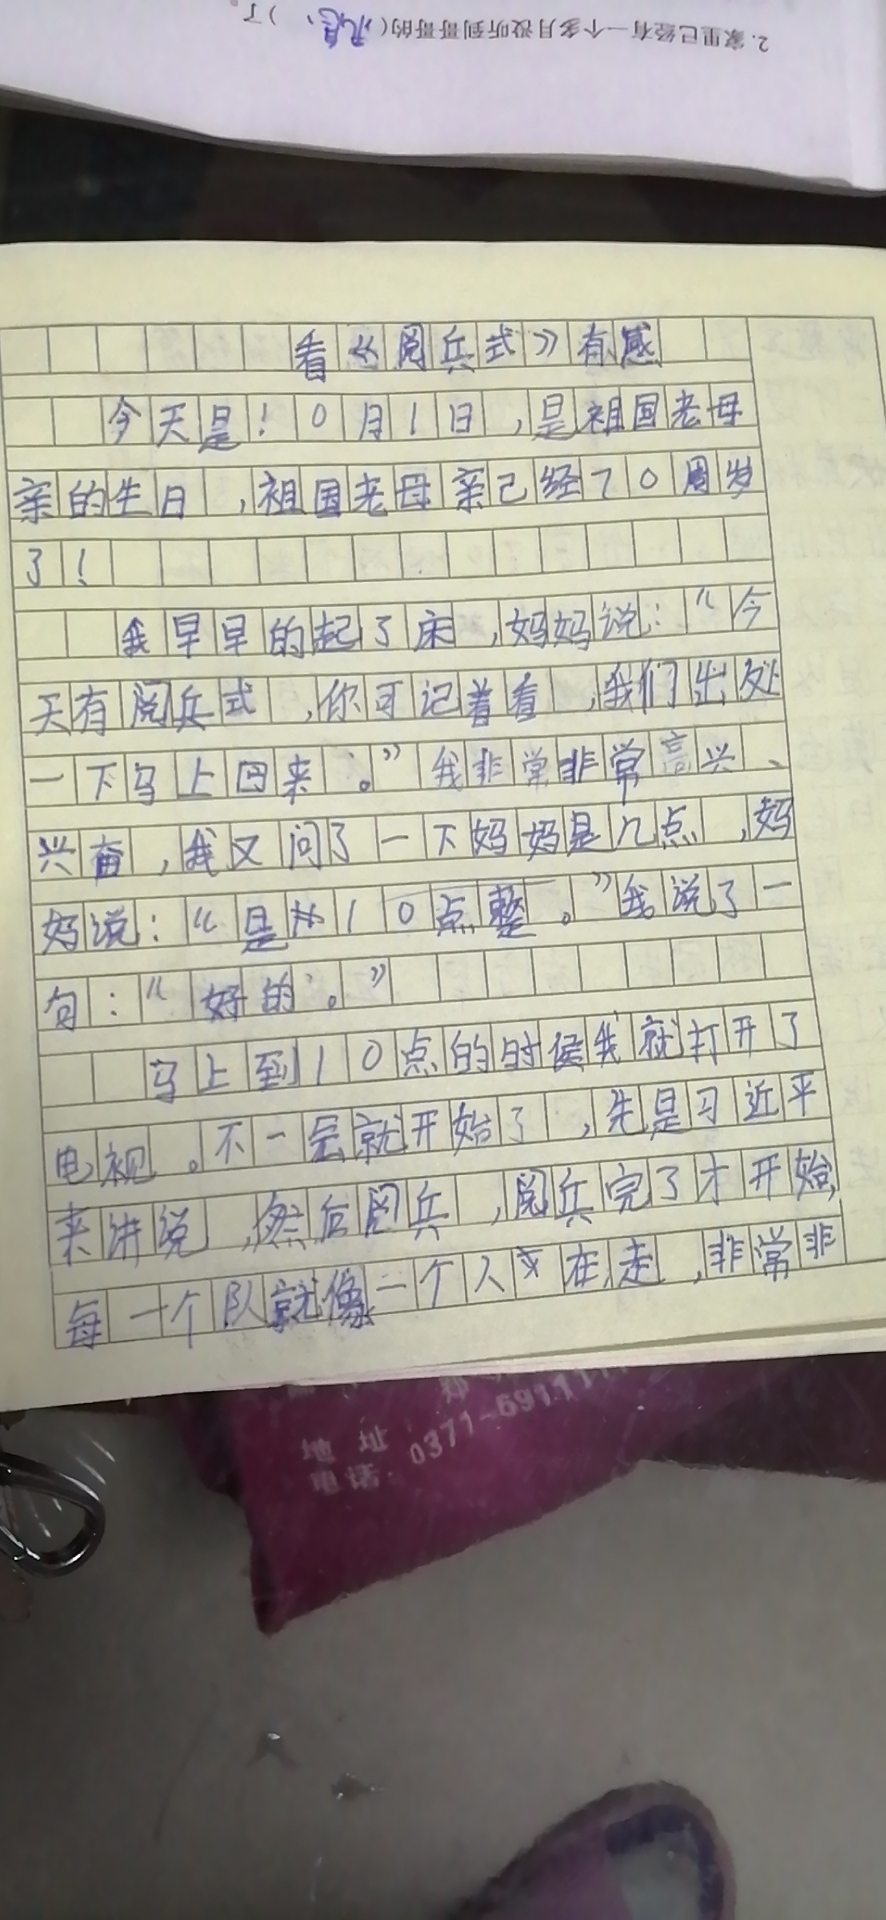 2. 家里已经有一个多月没听到哥哥的(讯息、)了。
看《阅兵式》有感
今天是10月1日,是祖国老母
亲的生日,祖国老母亲已经70周岁
了!
我早早的起了床,妈妈说:“今
天有阅兵式,你可记着看,我们出处
一下马上回来。”我非常非常高兴、
兴奋,我又问了一下妈妈是几点,妈
妈说:“是10点整。”我说了一
句:“好的。”
马上到10点的时侯我就打开了
电视。不一会就开始了,先是习近平
来讲说,然后阅兵,阅兵完了才开始,
每一个队就像一个人在走,非常非
地址
电话: 0371-6911